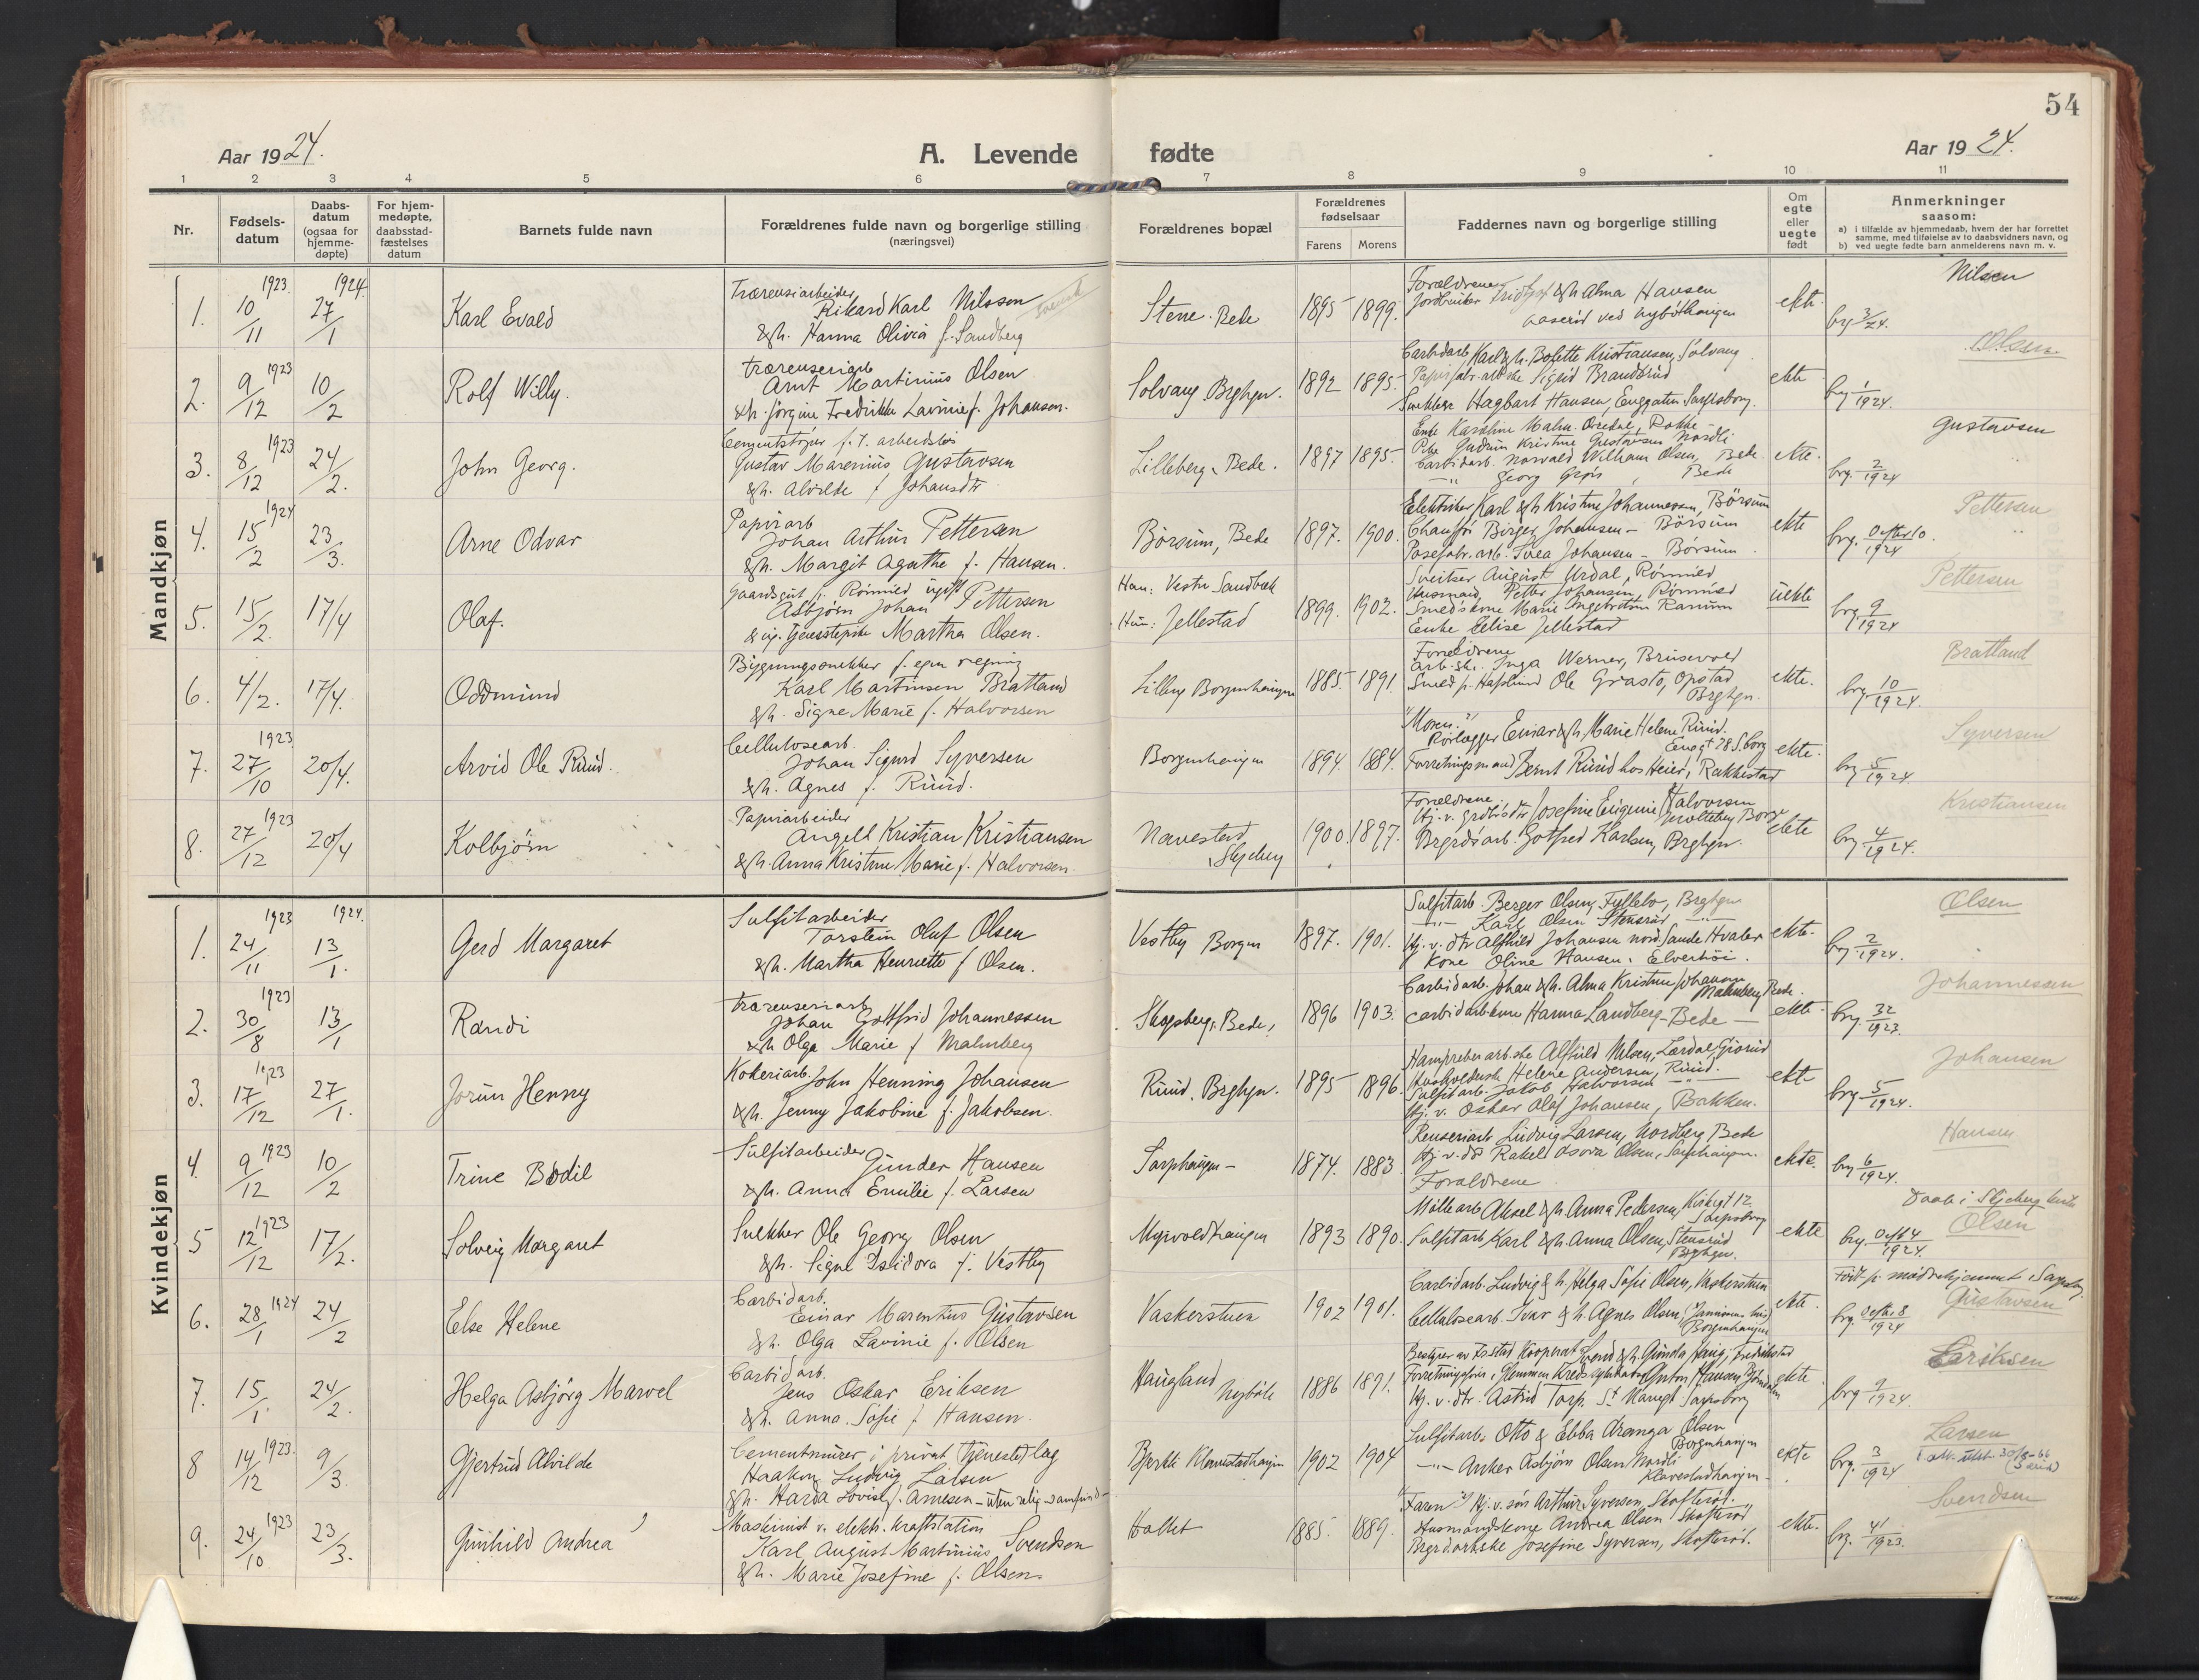 54
Aar 1924.
A. Levende fødte
Aar 1924.
1 2 3 4 5 6 7 8 9 10 11
Nr.
Fødsels-
datum
Daabs-
datum
(ogsaa for
hjemme-
døpte)
For hjem-
medøpte,
daabsstad-
fæstelses
datum
Barnets fulde navn
Forældrenes fulde navn og borgerlige stilling
(næringsvei)
Forældrenes bopæl
Forældrenes
fødselsaar
Farens Morens
Faddernes navn og borgerlige stilling
Om
egte
eller
uegte
født
Anmerkninger
saasom:
a) i tilfælde av hjemmedaab, hvem der har forrettet
samme, med tilføielse av to daabsvidners navn, og
b) ved uegte fødte barn anmelderens navn m. v.
Mandkjøn
1. 1923 10/11 1924 27/1 Karl Evald
Trærensiarbeider
Rikard Karl Nilssen
&h. Hanna Olivia f. Sandberg
Stene. Bede 1895 1899.
Forældrene
Alma Hansen
ekte.
Nilsen
brg 3/24.
2. 9/12 1923 10/2 Rolf Willy.
Trærenseriarb
Arnt Martinius Olsen
&h. Jørgine Fredrikke Lavinie f. Johansen.
Solvang Brghgn. 1892 1895.
Carbidarb. Karl &h. Bolette Kristiansen, Solvang
Sigrid Brandsrud
Snekker Hagbart Hansen, Enggaten Sarpsborg.
ekte
Olsen
brg 1/1924.
3. 8/12 1923 24/2. John Georg.
Cementstøper f. T. arbeidsløs
Gustav Marenius Gustavsen
&h. Alvilde f Johansdtr
Lilleberg. Bede. 1897 1895.
Enke Karoline
Pike Gudrun Kristine Gustavsen Nordli
Carbidarb. Norvald Wilhelm Olsen, Bede
Georg , Bede
ekte.
Gustavsen
brg. 2/1924
4. 15/2 1924 23/3. Arne Odvar
Papirarb
Johan Arthur Pettersen
&h. Margit Agathe f. Hansen.
Børsum, Bede 1897. 1900.
Elektriker Karl &h Kristine Johannessen, Børsum
Chauffør Birger Johansen - Børsum
Posefabr. arb. Svea Johansen - Børsum
ekte
Pettersen
brg. 10/1924
5. 15/2. 17/4 Olaf.
Gaardsgut p. Rømmed ugift
Asbjørn Johan Pettersen
& ug. tjenestepike Martha Olsen.
Han: Vestre Sandbæk
Hun: Jellestad
1899. 1902.
Sveitser August Urdal, Rømmed
Husmand, Petter Johansen, Rømmed
Smedskone Marie Ingebretsen Ranum
Enke Elise Jellestad
uekte
Pettersen
brg 9/1924
6. 4/2. 17/4. Oddmund
Bygningssnekker f. egen regning
Karl Martinsen Bratland
&h. Signe Marie f. Halvorsen
Lilleng Borgenhaugen 1885. 1891.
Forældrene
Arb.ske. Inga Werner, Brusevold
Smed p. Hafslund Ole Graston, Opstad
Brghgn.
ekte.
Bratland
brg 10/1924.
7. 27/10 1923 20/4. Arvid Ole Ruud.
Cellulosearb.
Johan Sigurd Syversen
&h. Agnes f. Ruud.
Borgenhaugen 1894. 1884.
"Moren."
Rørlægger Einar &h. Marie Helene Ruud.
Enggt 28 S.borg
Forretningsmand Bernt Ruud hos Heier, Rakkestad
ekte.
Syversen
brg 5/1924
8. 27/12 1923 20/4 Kolbjørn
Papirarbeider
Angell Kristian Kristiansen
&h. Anna Kristine Marie f. Halvorsen.
Navestad
Skjeberg
1900. 1897.
Forældrene.
Josefine Eugenie Halvorsen
Borge
Gotfred Karlsen, Brghgn.
ekte
Kristiansen
brg 4/1924.
Kvindekjøn
1. 1923 24/11 1924. 13/1. Gerd Margaret
Sulfitarbeider
Torstein Oluf Olsen
&h. Martha Henriette f Olsen.
Vestby Borgen 1897. 1901.
Sulfitarb. Berger Olsen, , Brghgn
-"- Karl Olsen Stensrud -"-
Hj. v. dtr Alfhild Johansen nord. Sande Hvaler
Kone Oline Hansen. Elverhøi.
ekte.
Olsen
brg 2/1924.
2. 1923 30/8 13/1 Randi
Trærenseriarb
Johan Gottfrid Johannessen
&h Olga Marie f Malmberg
Skogsberg. Bede, 1896 1903.
Carbidarb. Johan &h. Alma Kristine Johansen
Malmberg Bede.
Carbidarb.kone Hanna Landberg - Bede -
ekte
Johannessen
brg. 32/1923.
3. 1923 17/12 27/1. Jorun Henny
Kokeriarb. John Henning Johansen
&h. Jenny Jakobine f. Jakobsen.
Ruud. Brghgn. 1895 1896.
arb.ske Alfhild Nilsen,
Helene Andersen, Ruud.
Sulfitarb. Jakob Halvorsen -"-
Hj. v. Oskar Olaf Johansen, Bakken.
ekte
Johansen
brg. 5/1924.
4. 9/12 1923 10/2 Trine Bodil
Sulfitarbeider
Gunder Hansen
&h. Anna Emilie f. Larsen
Sarphaugen - 1874. 1883.
Renseriarb Ludvig Larsen, Nordberg Bede
Hj. v. dtr Rakel Asora Olsen, Sarphaugen.
Forældrene
ekte.
Hansen
brg 6/1924.
5 12/12 1923 17/2. Solveig Margaret
Snekker Ole Georg Olsen
&h. Signe Isidora f. Vestby
Myrvoldhaugen 1893 1890.
Møllearb Aksel &h. Anna Pedersen, Kirkegt 12
Sarpsborg
Sulfitarb. Karl &h. Anna Olsen, Stensrud
Brghgn.
ekte
Daab i Skjeberg kirke
Olsen
brg. 4/1924.
6. 28/1 1924 24/2 Else Helene
Carbidarb.
Einar Marentius Gustavsen
&h. Olga Lavinie f. Olsen
Vaskerstuen 1902 1901.
Carbidarb. Ludvig & h. Helga Sofie Olsen, Vaskerstuen
Cellulosearb. Ivar & h. Agnes Olsen,
Borgenhaugen
ekte.
Født p. mødrehjemmet i Sarpsborg
Gustavsen
brg. 8/1924
7. 15/1. 24/2. Helga Asbjørg Marvel
Carbidarb.
Jens Oskar Eriksen
&h. Anna. Sofie f Hansen.
Haugland
Nybøle
1886 1891.
Bestyrer av Fr.stad Kooperat Svend &h. Gunda Haug, Fredrikstad
Anton Hansen
Hj. v. dtr. Astrid Torp. St. Mariegt Sarpsborg
ekte
Eriksen
brg 9/1924.
8 14/12 1923. 9/3. Gjertrud Alvilde
Cementmurer i privat tjeneste, lag
Haakon Ludvig Larsen
&h. Harda Lovise f. Arnesen - uten relig. samfund -
Bjerkli Klavestadhaugen 1902 1904
Sulfitarb. Otto & Ebba Aranga Olsen
Borgenhaugen
-"- Anker Asbjørn Olsen Nordli
Klavestadhaugen -
ekte
Larsen
brg. 3/1924
9. 24/10 1923 23/3. Gunhild Andrea
Maskinist v. elektr. kraftstation
Karl August Martinius Svendsen
&h. Marie Josefine f. Olsen.
Hallet 1885. 1889.
"Faren" Hj. v. søn Arthur Syversen, Skofterød.
Husmandskone Andrea Olsen Skofterød
Josefine Syversen, Skofterød.
ekte.
Svendsen
brg. 41/1923.